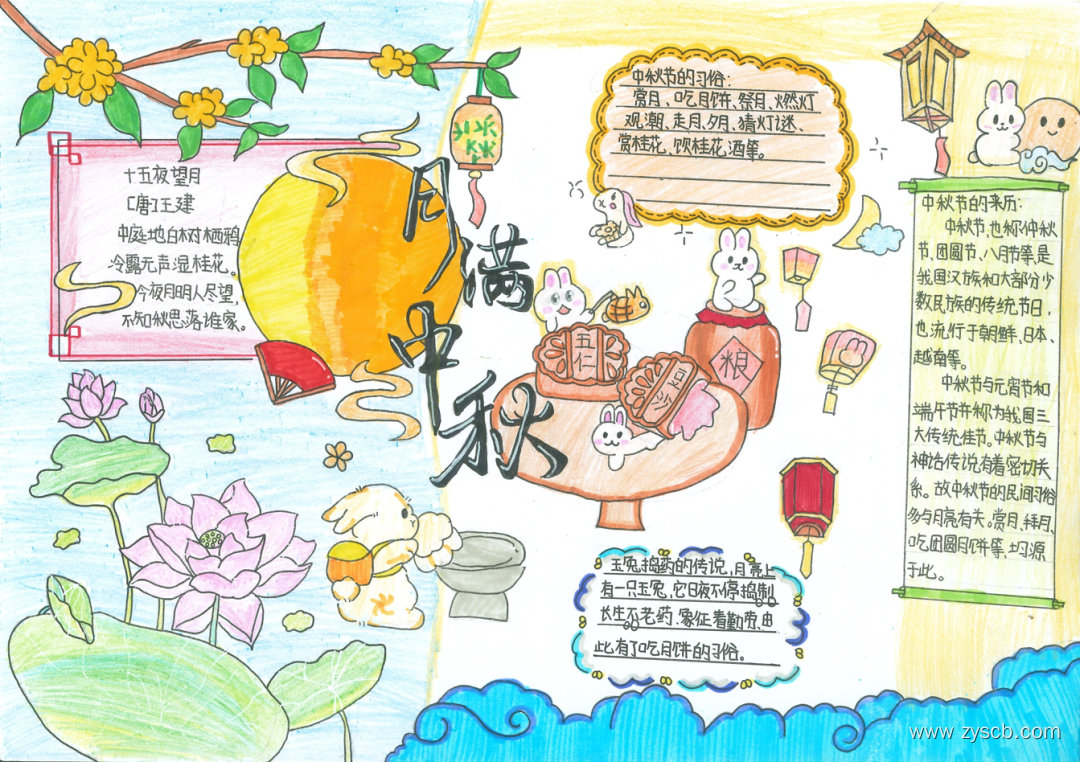 十五夜望月
[唐]王建
中庭地白树栖鸦
冷露无声湿桂花。
今夜月明人尽望,
不知秋思落谁家。
月满中秋
中秋节的习俗:
赏月、吃月饼、祭月、燃灯
观潮、走月、夕月、猜灯谜、
赏桂花、饮桂花酒等。
五仁
粮
中秋节的来历:
中秋节,也称仲秋
节、团圆节、八月节等,是
我国汉族和大部分少
数民族的传统节日,
也流行于朝鲜、日本、
越南等。
中秋节与元宵节和
端午节并称为我国三
大传统佳节。中秋节与
神话传说有着密切关
系。故中秋节的民间习俗
多与月亮有关。赏月、拜月、
吃团圆月饼等,均源
于此。
玉兔捣药的传说,月亮上
有一只玉兔,它日夜不停捣制
长生不老药.象征着勤劳,由
此有了吃月饼的习俗。
www.zyscb.com